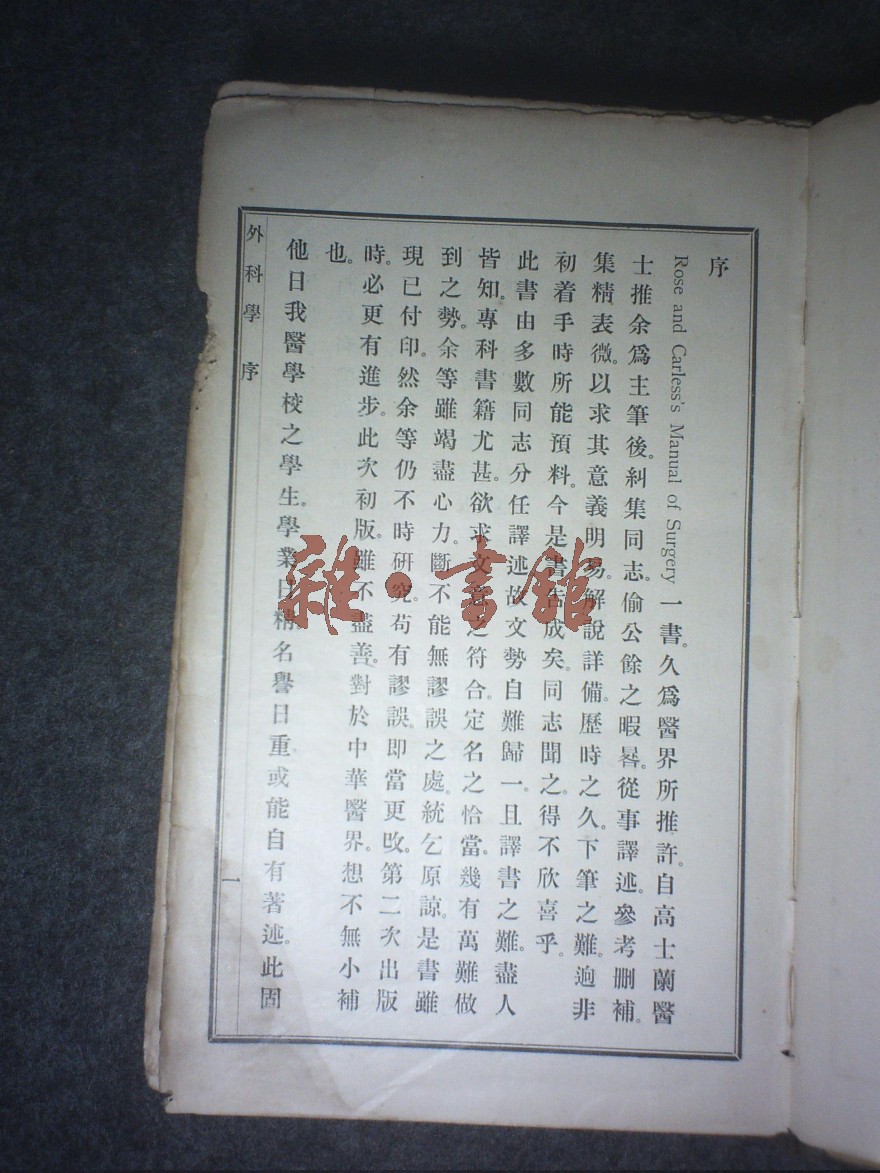 序
Rose and Carless's Manual of Surgery 一書。久爲醫界所推許。自高士蘭醫
士推余爲主筆後。糾集同志。偷公餘之暇晷。從事譯述。參考刪補。
集精表微。以求其意義明易。解說詳備。歷時之久。下筆之難。迥非
初着手時所能預料。今是書告成矣。同志聞之。得不欣喜乎。
此書由多數同志分任譯述。故文勢自難歸一。且譯書之難。盡人
皆知。專科書籍尤甚。欲求文意之符合。定名之恰當。幾有萬難做
到之勢。余等雖竭盡心力。斷不能無謬誤之處。統乞原諒。是書雖
現已付印。然余等仍不時研究。苟有謬誤。即當更改。第二次出版
時。必更有進步。此次初版。雖不盡善。對於中華醫界。想不無小補
也。
他日我醫學校之學生。學業日精。名譽日重。或能自有著述。此固
外科學 序
一
雜·書館